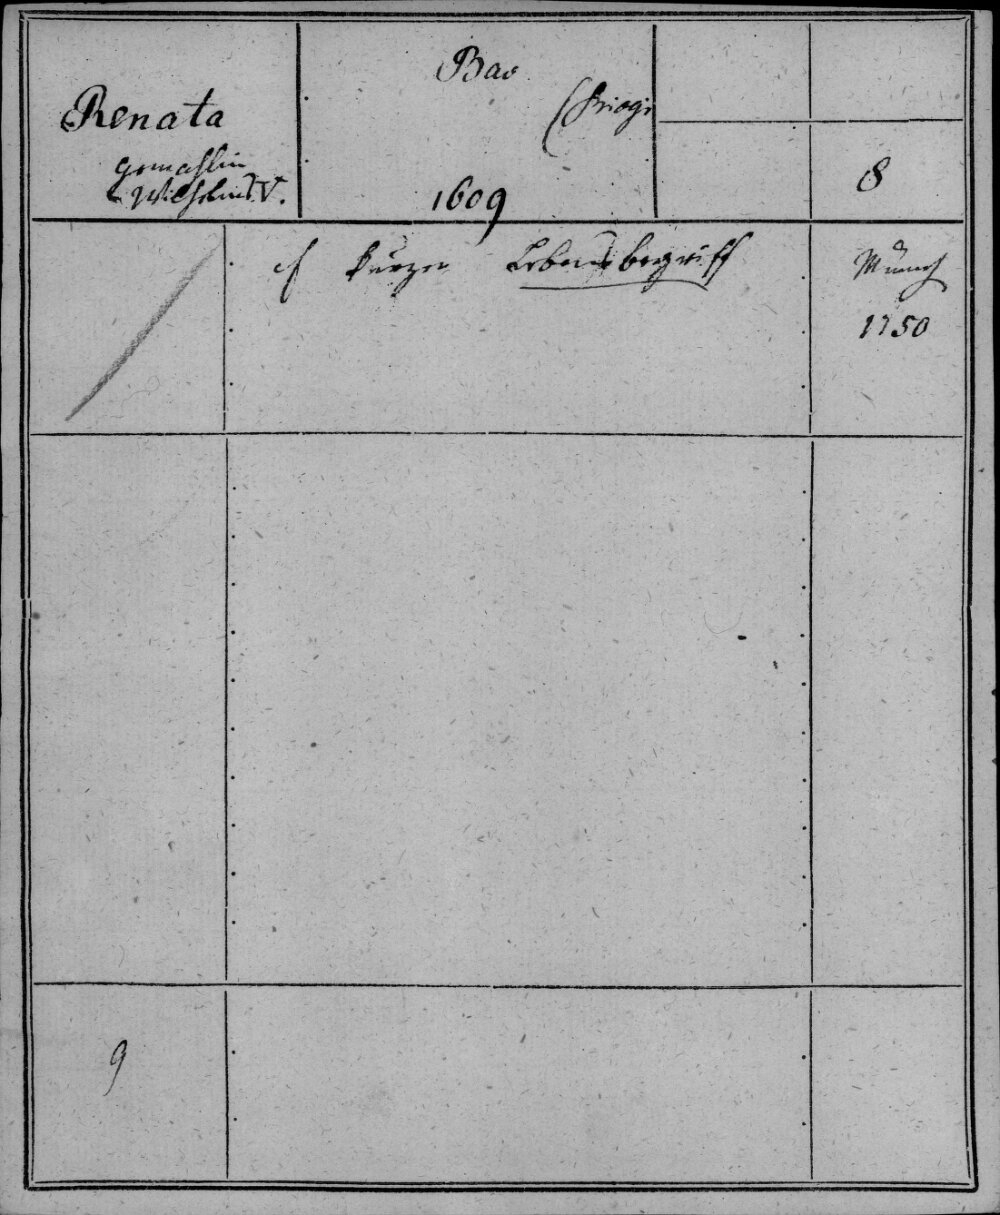 Renata
Gemahlin
Wilhelms V.
Bav
1609
8
cf kurzer Lebensbegriff
Münch
1750
9